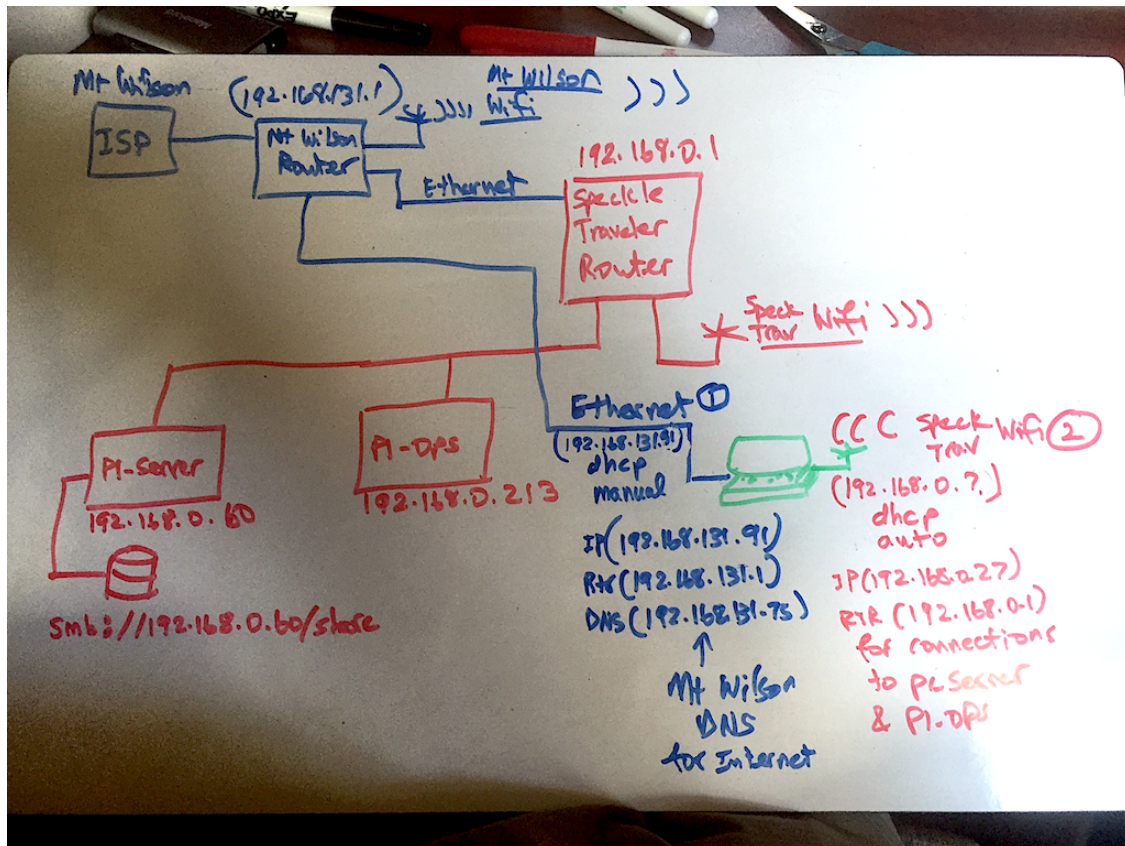 EXPO
Mt Wilson
ISP
(192.168.131.1)
Mt Wilson
Router
Mt Wilson
Wifi
Ethernet
192.168.0.1
Speckle
Traveler
Router
Speck
Trav Wifi
PI-Server
192.168.0.60
smb://192.168.0.60/share
PI-DPS
192.168.0.213
Ethernet 1
(192.168.131.91)
dhcp
manual
IP(192.168.131.91)
Rtr(192.168.131.1)
DNS(192.168.131.75)
Mt Wilson
DNS
for Internet
Speck
Trav Wifi 2
(192.168.0.?.)
dhcp
auto
IP(192.168.0.27)
RTR (192.168.0.1)
for connections
to pi server
& PI-DPS